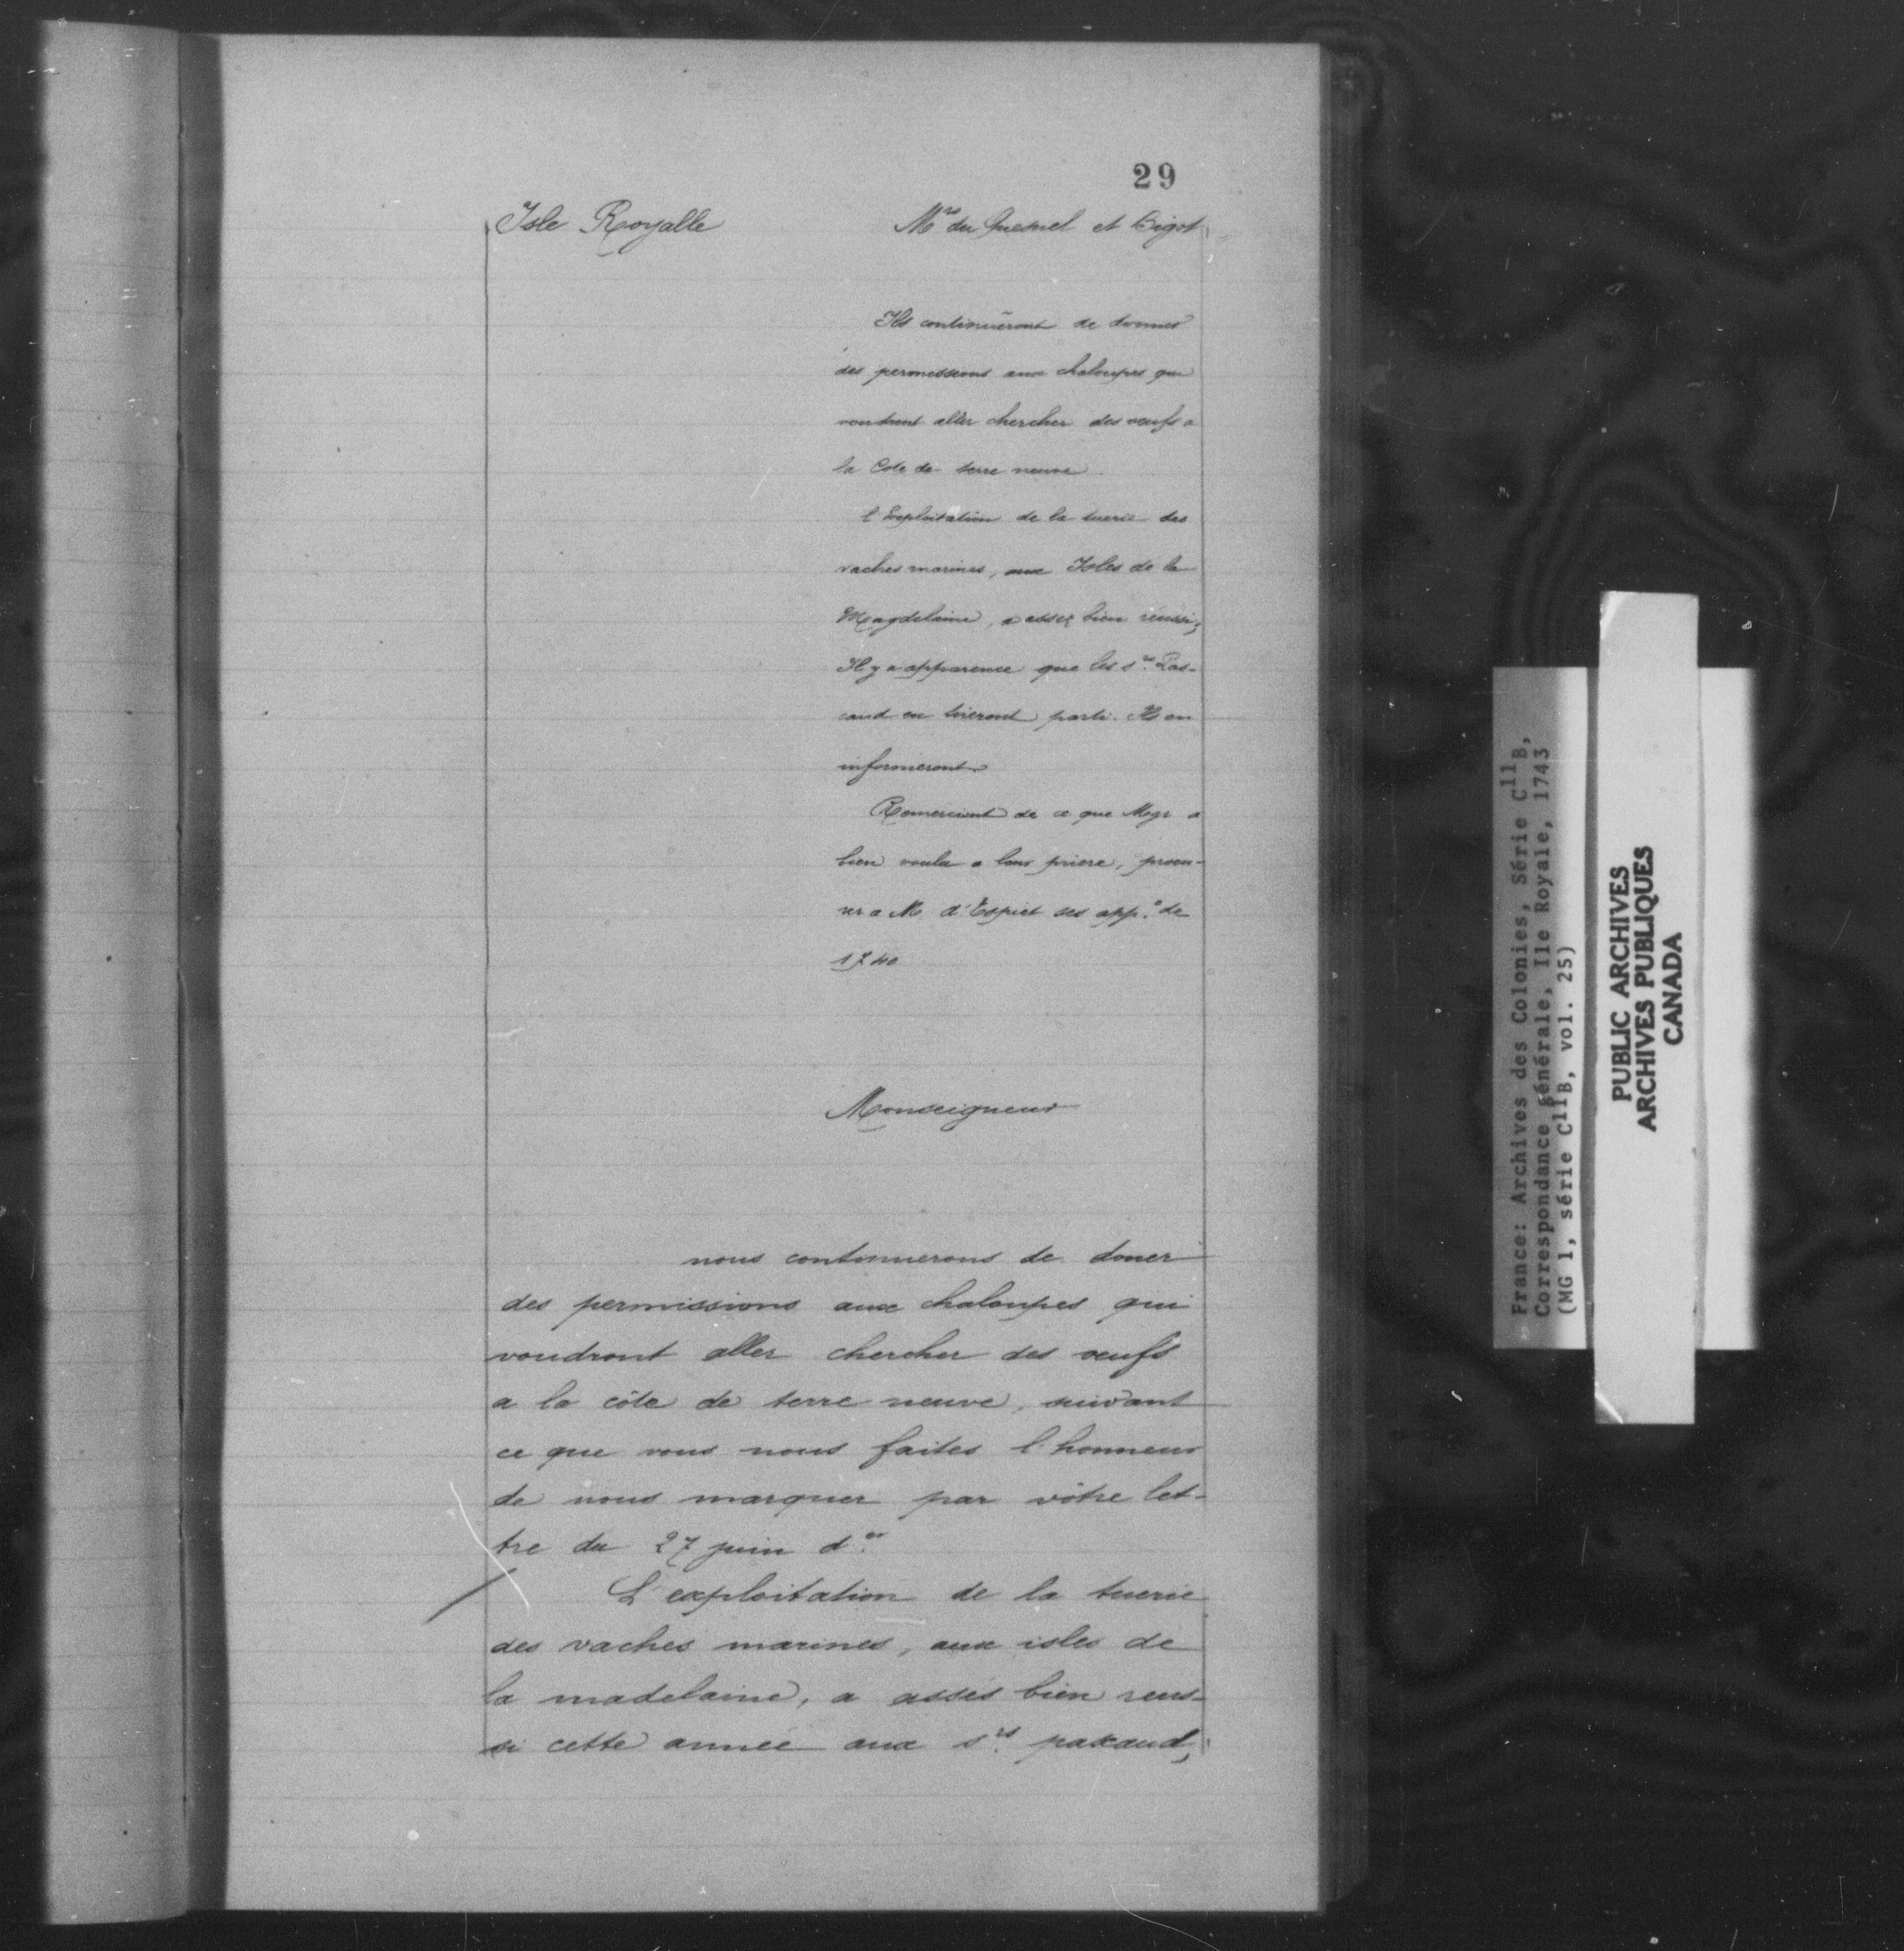 29
Isle Royalle
Mrs du Quesnel et Bigot
Ils continüeront de donner
des permissions aux chaloupes qui
voudront aller chercher des oeufs a
la Cote de terre neuve.
l'Exploitation de la tuerie des
vaches marines, aux Isles de la
Magdelaine, a assez bien réussi;
Il y a apparence que les srs. Pas-
caud en tireront parti. Ils en
informeront
Remercient de ce que Mgr a
bien voulu a leur priere, procu-
rer a M. d'Espiet ses app.s de
1740
Monseigneur
nous continuerons de doner
des permissions aux chaloupes qui
voudront aller chercher des oeufs
a la côte de terre neuve, suivant
ce que vous nous faites l'honneur
de nous marquer par vôtre let-
tre du 27 juin d.er
L'exploitation de la tuerie
des vaches marines, aux isles de
la madelaine, a assés bien reus-
si cette année aux s.rs pascaud,
France: Archives des Colonies, Série C11B,
Correspondance générale, Ile Royale, 1743
(MG 1, série C11B, vol. 25)
PUBLIC ARCHIVES
ARCHIVES PUBLIQUES
CANADA